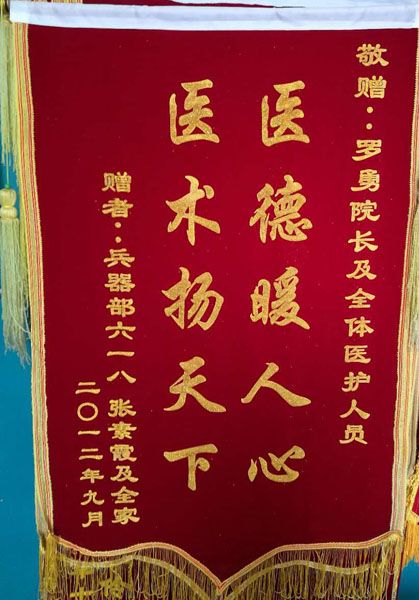 敬赠：罗勇院长及全体医护人员
医德暖人心
医术扬天下
赠者：兵器部六一八 张素霞及全家
二〇一二年九月